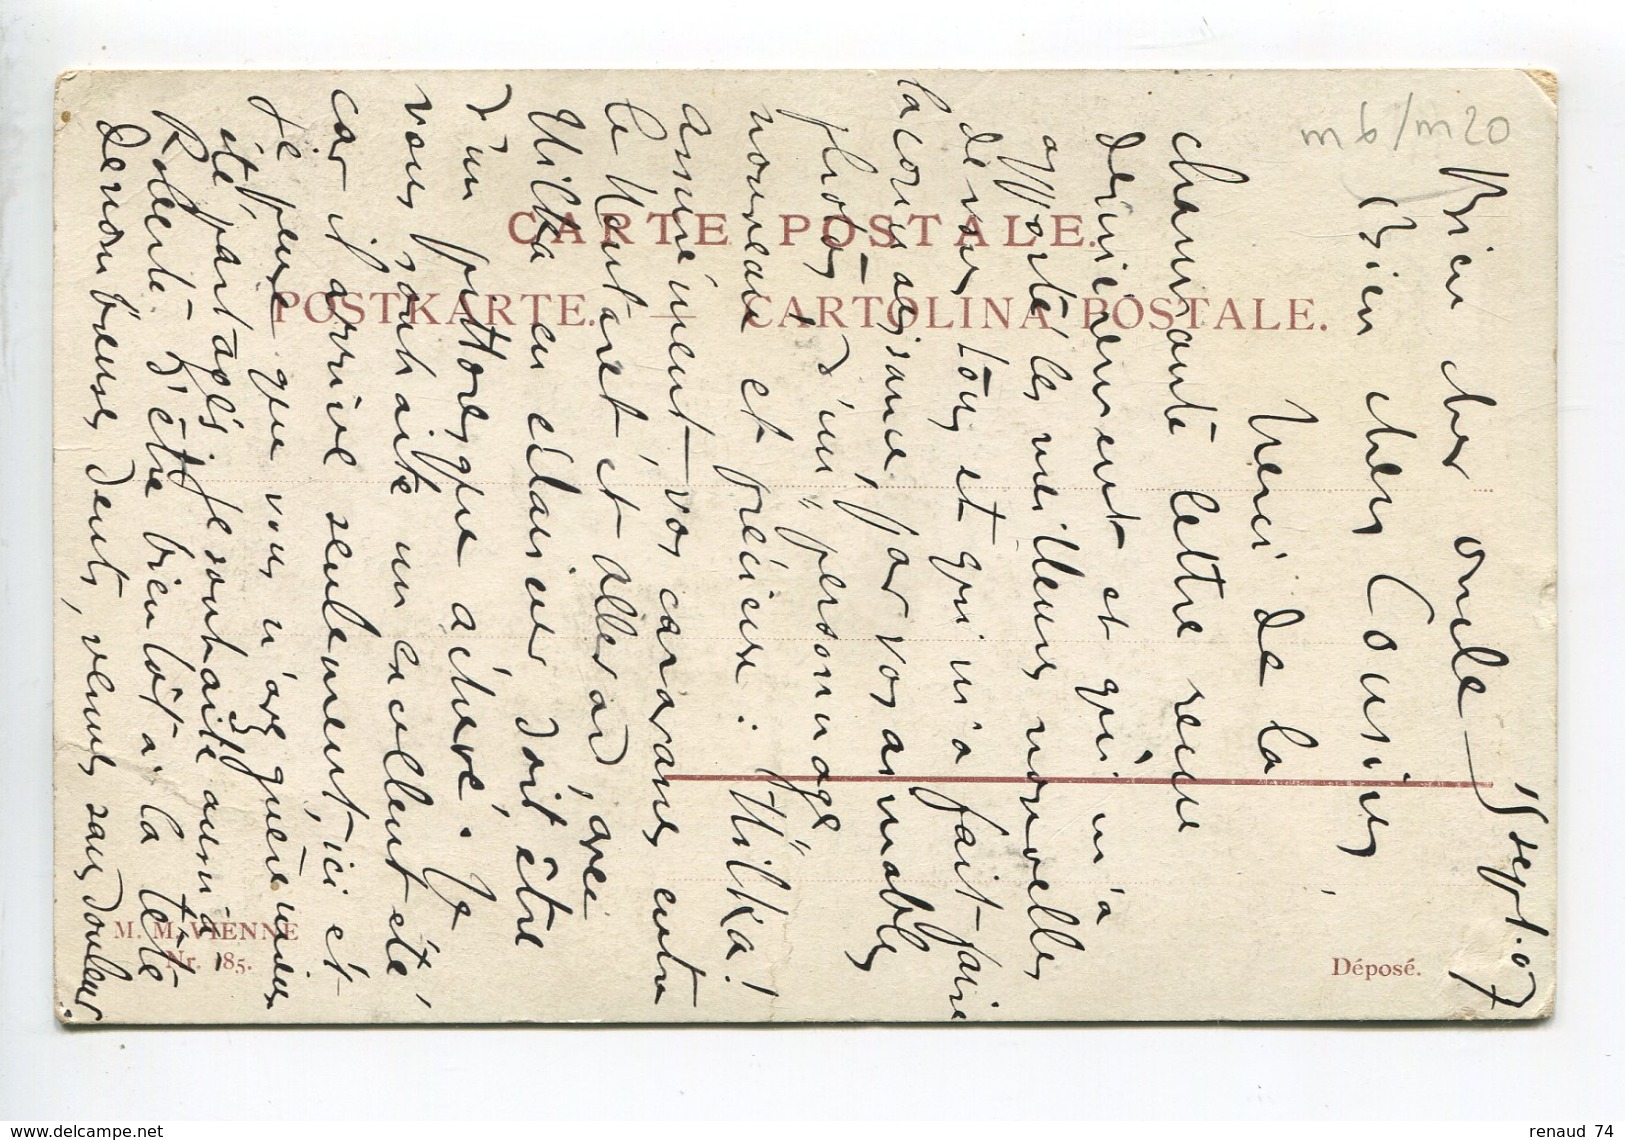 m6/m20
CARTE POSTALE.
POSTKARTE. — CARTOLINA POSTALE.
M. M. VIENNE
Nr. 185.
Déposé.
15 sept. 07
Bien cher oncle –
Bien chers Cousins
Merci de la
charmante lettre reçue
dernièrement et qui m'a
apporté les meilleures nouvelles
de vous tous et qui m'a fait faire
la connaissance, par vos aimables
photos, d'un "personnage"
nouveau et précieux : "Hilka"!
assurément vos caravanes entre
le Nant et aller ,avec
Hilka en doit être
d'un pittoresque achevé. Je
vous souhaite un excellent été,
car il arrive seulement, ici et
je pense que vous n'avez guère mieux
été partagés je souhaite aussi à
Roberte d'être bientôt à la tête
de nombreuses dents, venues sans douleur.
www.delcampe.net
renaud 74